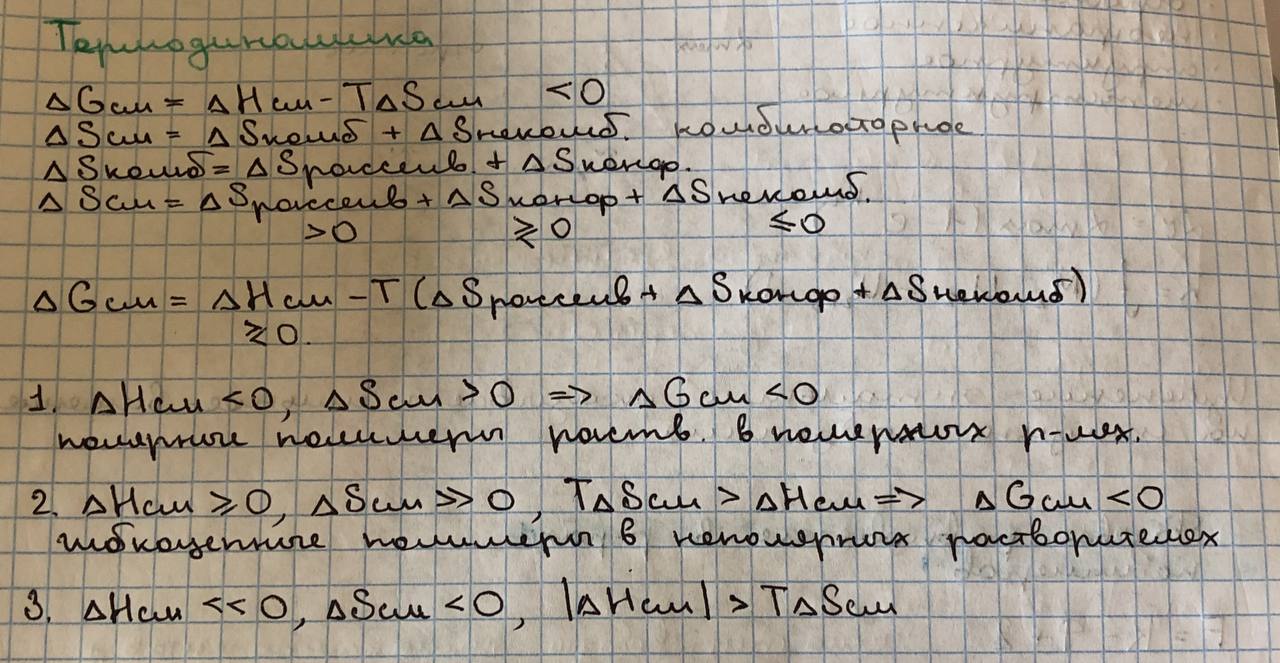 Термодинамика
ΔGсм = ΔHсм - TΔSсм <0
ΔSсм = ΔSкомб + ΔSнекомб. комбинаторное
ΔSкомб = ΔSрассеив. + ΔSконф.
ΔSсм = ΔSрассеив + ΔSконф + ΔSнекомб.
>0 ⩾0 ⩽0
ΔGсм = ΔHсм - T (ΔSрассеив + ΔSконф + ΔSнекомб)
⩾0.
1. ΔHсм <0, ΔSсм >0 => ΔGсм <0
полярные полимеры раств. в полярных р-лях.
2. ΔHсм ⩾0, ΔSсм ≫ 0, TΔSсм > ΔHсм => ΔGсм <0
гибкоцепные полимеры в неполярных растворителях
3. ΔHсм << 0, ΔSсм <0, |ΔHсм| > TΔSсм